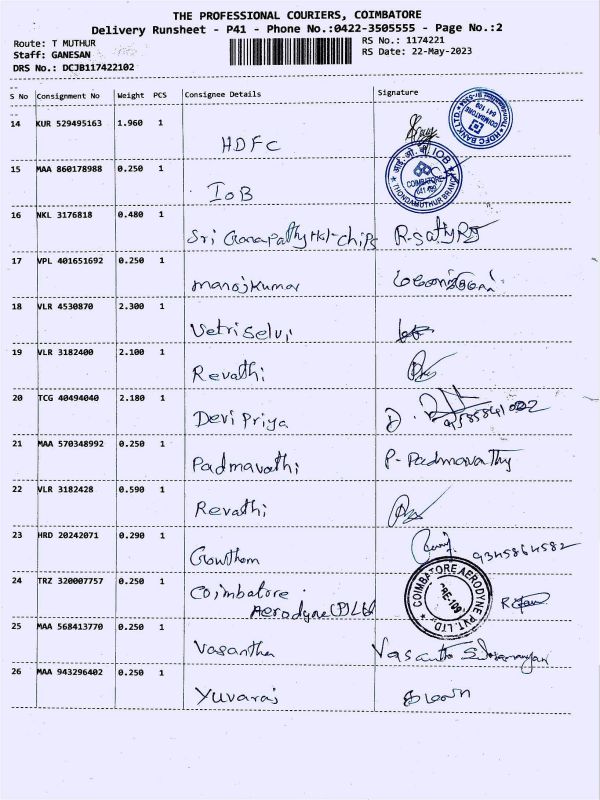 THE PROFESSIONAL COURIERS, COIMBATORE
Delivery Runsheet - P41 - Phone No.:0422-3505555 - Page No.:2
Route: T MUTHUR
RS No.: 1174221
Staff: GANESAN
RS Date: 22-May-2023
DRS No.: DCJB117422102
S No Consignment No Weight PCS Consignee Details Signature
14 KUR 529495163 1.960 1
HDFC
HDFC BANK LTD. COIMBATORE 641 109
15 MAA 860178988 0.250 1
IOB
IOB COIMBATORE 641 109 THONDAMUTHUR BRANCH
16 NKL 3176818 0.480 1
Sri Ganapathy Hot-chips
17 VPL 401651692 0.250 1
Manojkumar
18 VLR 4530870 2.300 1
Vetriselvi
19 VLR 3182400 2.100 1
Revathi
20 TCG 40494040 2.180 1
Devi Priya D.
21 MAA 570348992 0.250 1
Padmavathi P-Padmavathy
22 VLR 3182428 0.590 1
Revathi
23 HRD 20242071 0.290 1
Gowtham 9345864582
24 TRZ 320007757 0.250 1
Coimbatore
Aerodyne (P) Ltd
COIMBATORE AERODYNE PVT. LTD.
25 MAA 568413770 0.250 1
Vasantha
26 MAA 943296402 0.250 1
Yuvaraj